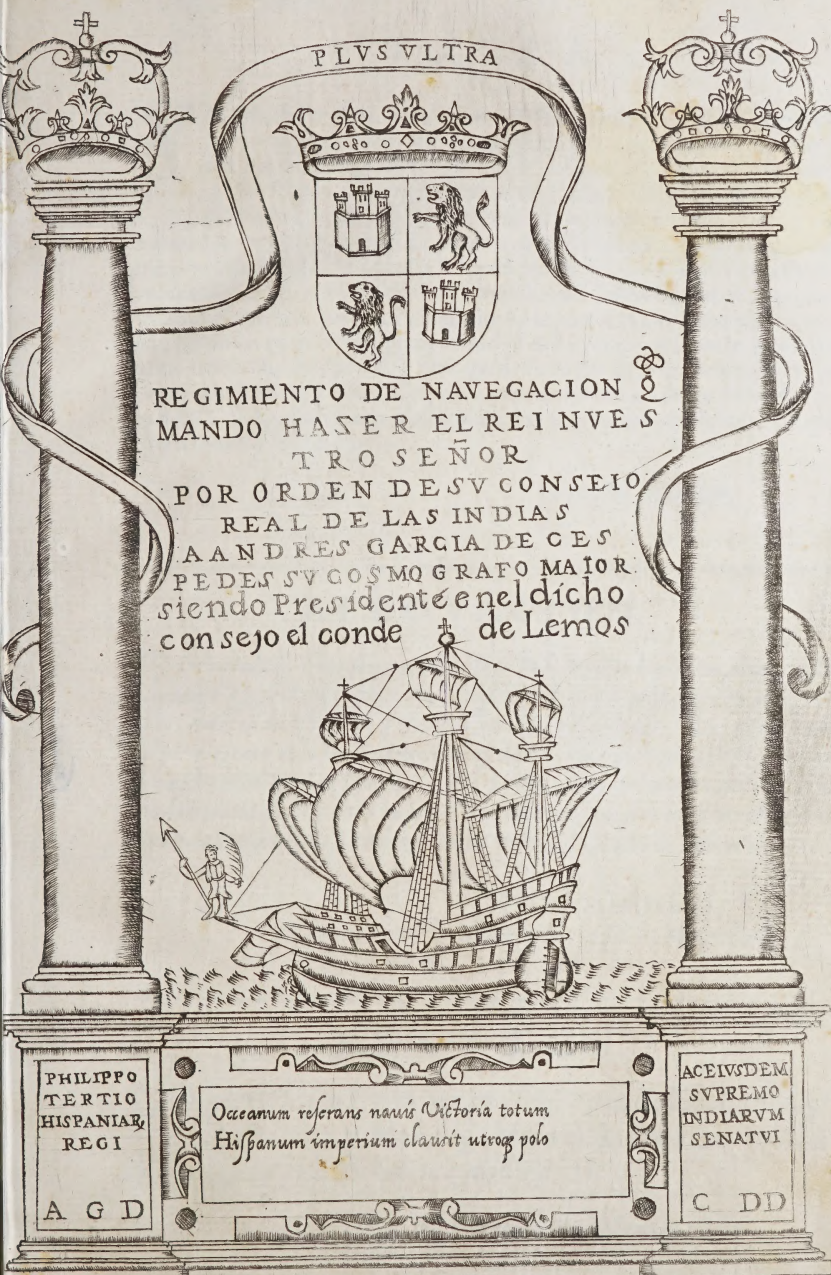 PLVS VLTRA
REGIMIENTO DE NAVEGACION Q̃
MANDO HAZER EL REI NVES
TRO SEÑOR
POR ORDEN DE SV CONSEIO
REAL DE LAS INDIAS
A ANDRES GARCIA DE CES
PEDES SV COSMOGRAFO MAIOR
siendo Presidente en el dicho
consejo el conde de Lemos
PHILIPPO
TERTIO
HISPANIAR,
REGI
A G D
Occeanum reserans navis Victoria totum
Hispanum imperium clausit utroq̃ polo
AC EIVSDEM
SVPREMO
INDIARVM
SENATVI
C DD